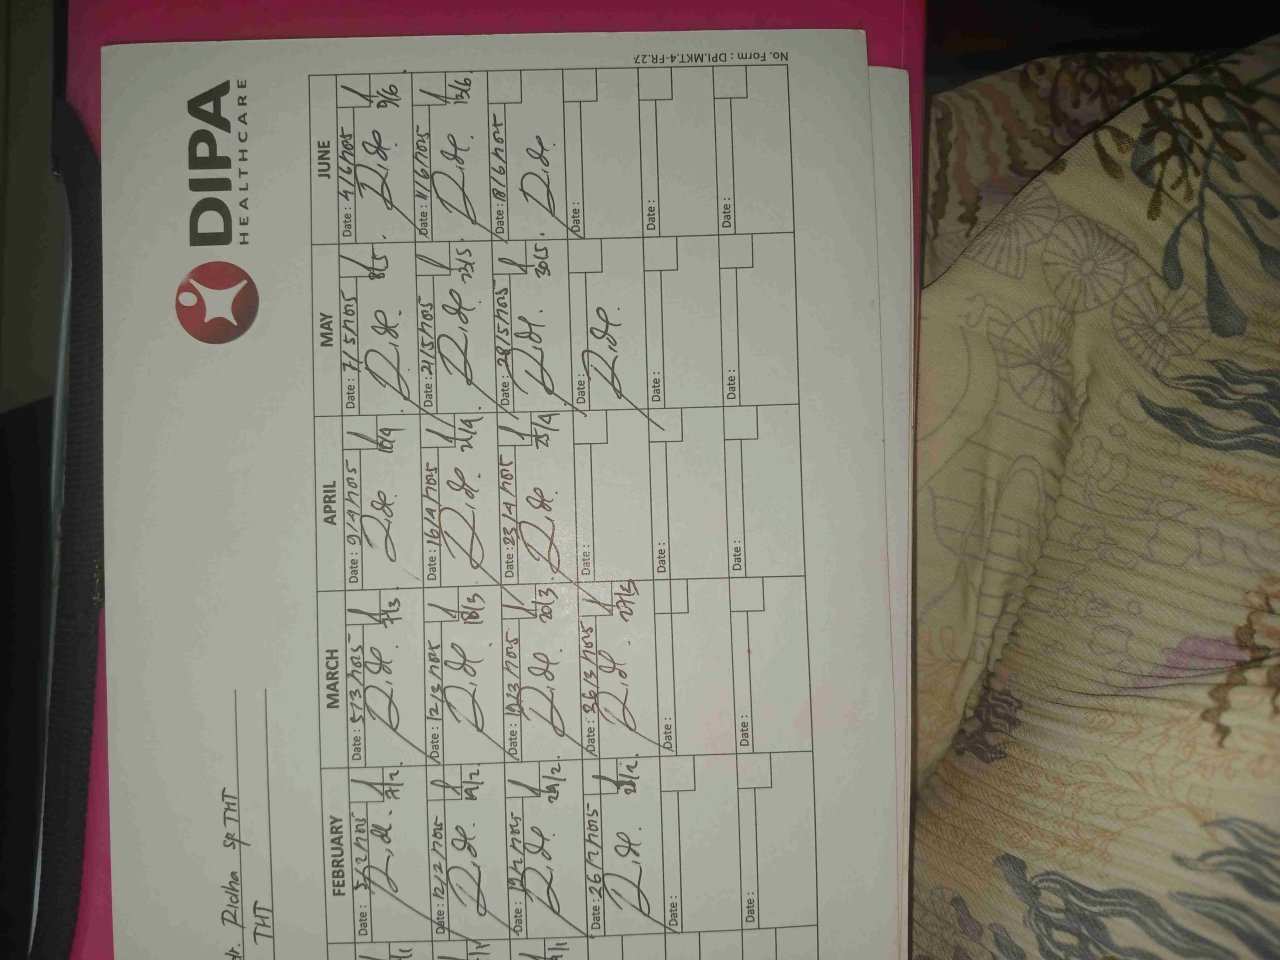 DIPA
HEALTHCARE
dr. Ridha Sp THT
THT
FEBRUARY MARCH APRIL MAY JUNE
Date : 5/2/2025 Date : 5/3/2025 Date : 9/4/2025 Date : 7/5/2025 Date : 4/6/2025
7/2 7/3 10/4 8/5 9/6
Date : 12/2/2025 Date : 12/3/2025 Date : 16/4/2025 Date : 21/5/2025 Date : 11/6/2025
14/2 18/3 21/4 23/5 13/6
Date : 19/2/2025 Date : 19/3/2025 Date : 23/4/2025 Date : 28/5/2025 Date : 18/6/2025
24/2 20/3 25/4 30/5
Date : 26/2/2025 Date : 26/3/2025 Date : Date : Date :
28/2 27/3
Date : Date : Date : Date : Date :
Date : Date : Date : Date : Date :
No. Form : DPI.MKT.4-FR.27